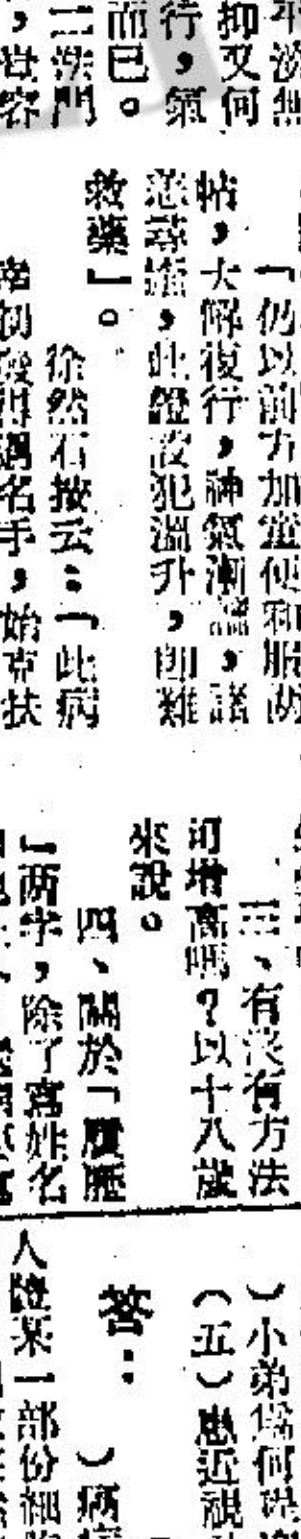 平淡無
抑又何
行，氣
而已。
二洪門
，豈容
「仍以前方加童便和服两
帖，大解復行，神氣漸謐，諸
恙尋痊，此證設犯溫升，卽難
救藥」。
徐然石按云：「此病
幸初發得遇名手，始克扶
三、有沒有方法
可增高嗎？以十八歲
來說。
四、關於「履歷
」两字，除了寫姓名
）小弟爲何
（五）患近視
答：
）病
人體某一部份細